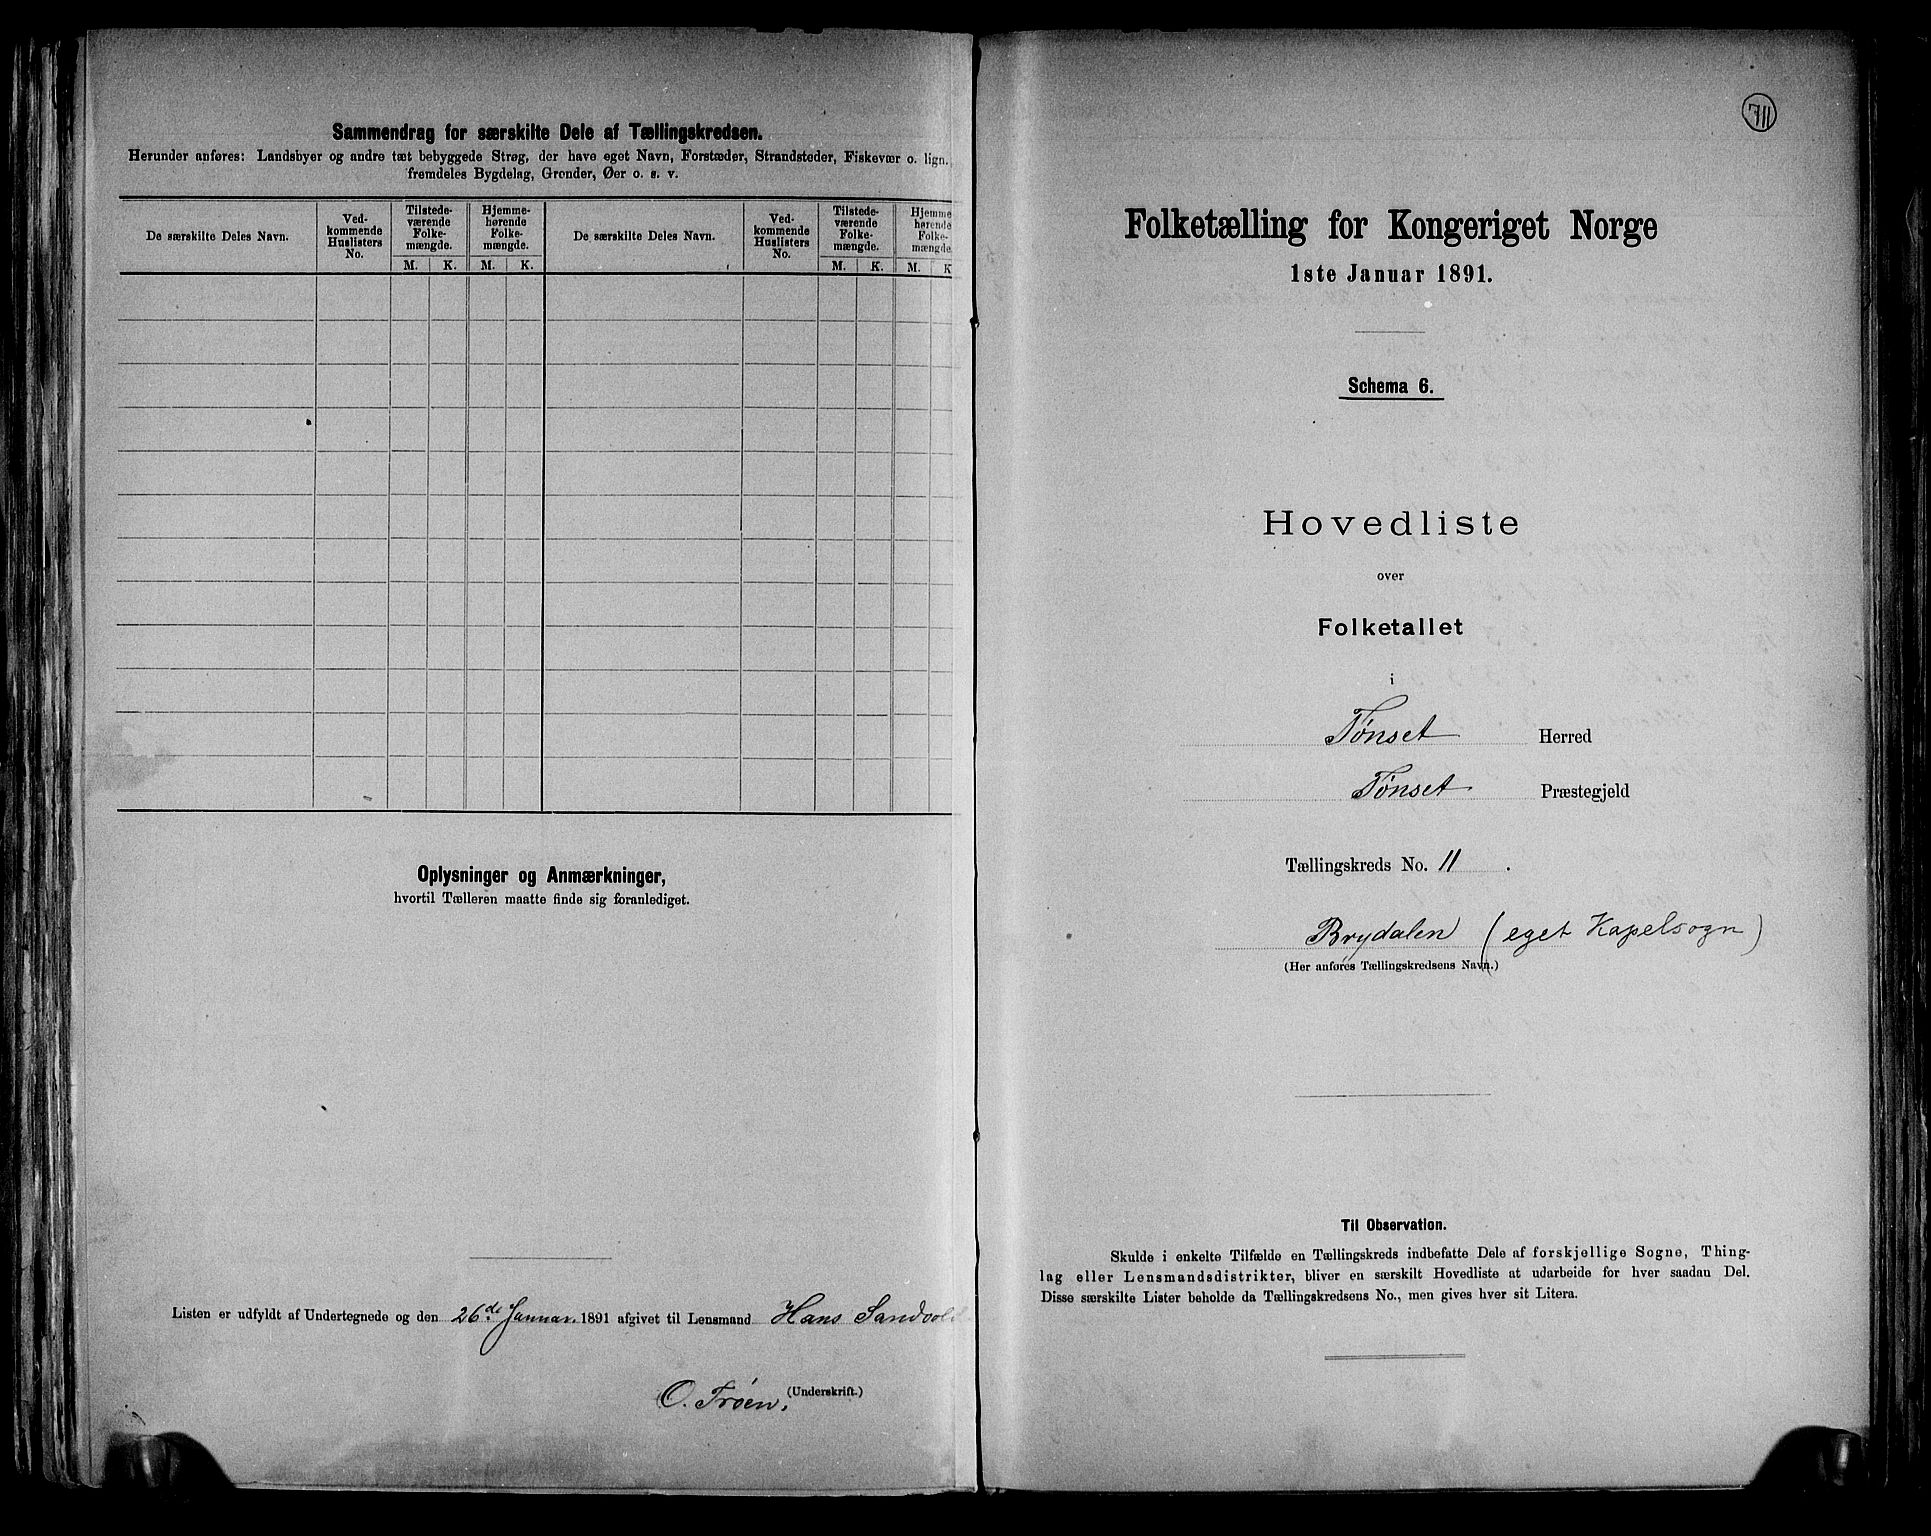 Sammendrag for særskilte Dele af Tællingskredsen.
Herunder anføres: Landsbyer og andre tæt bebyggede Strøg, der have eget Navn, Forstæder, Strandsteder, Fiskevær o. lign.
fremdeles Bygdelag, Grender, Øer o. s. v.
De særskilte Deles Navn.
Ved-
kommende
Huslisters
No.
Tilstede-
værende
Folke-
mængde.
Hjemme-
hørende
Folke-
mængde.
De særskilte Deles Navn.
Ved-
kommende
Huslisters
No.
Tilstede-
værende
Folke-
mængde.
Hjemme-
hørende
Folke-
mængde.
M. K. M. K. M. K. M. K
Oplysninger og Anmærkninger,
hvortil Tælleren maatte finde sig foranlediget.
Listen er udfyldt af Undertegnede og den 26de Januar. 1891 afgivet til Lensmand Hans Sandvold
O. Trøen, (Underskrift.)
711
Folketælling for Kongeriget Norge
1ste Januar 1891.
Schema 6.
Hovedliste
over
Folketallet
i
Tønset Herred
Tønset Præstegjeld
Tællingskreds No. 11 .
Brydalen (eget Kapelsogn)
(Her anføres Tællingskredsens Navn.)
Til Observation.
Skulde i enkelte Tilfælde en Tællingskreds indbefatte Dele af forskjellige Sogne, Thing-
lag eller Lensmandsdistrikter, bliver en særskilt Hovedliste at udarbeide for hver saadan Del.
Disse særskilte Lister beholde da Tællingskredsens No., men gives hver sit Litera.